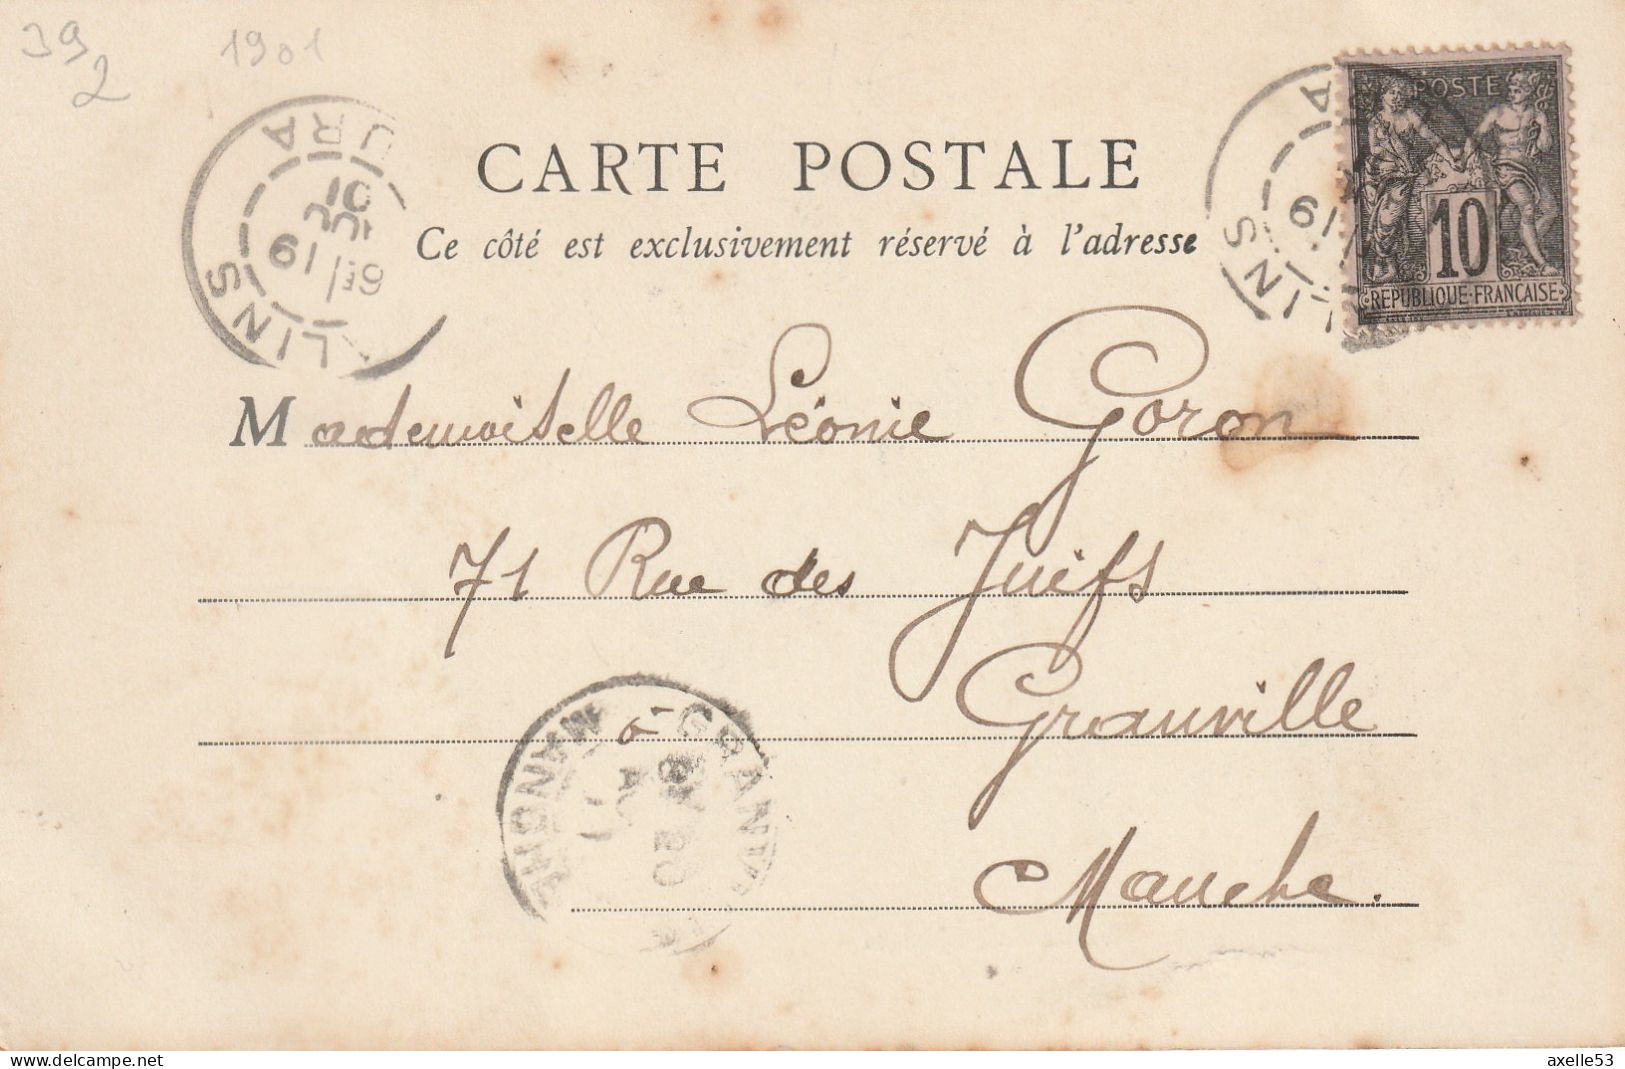 39
2
1901
JURA
LINS
19
POSTE
10
REPUBLIQUE FRANÇAISE
CARTE POSTALE
Ce côté est exclusivement réservé à l'adresse
Mademoiselle Léonie Goron
71 Rue des Juifs
à Granville
Manche.
MANCHE
axelle53
www.delcampe.net